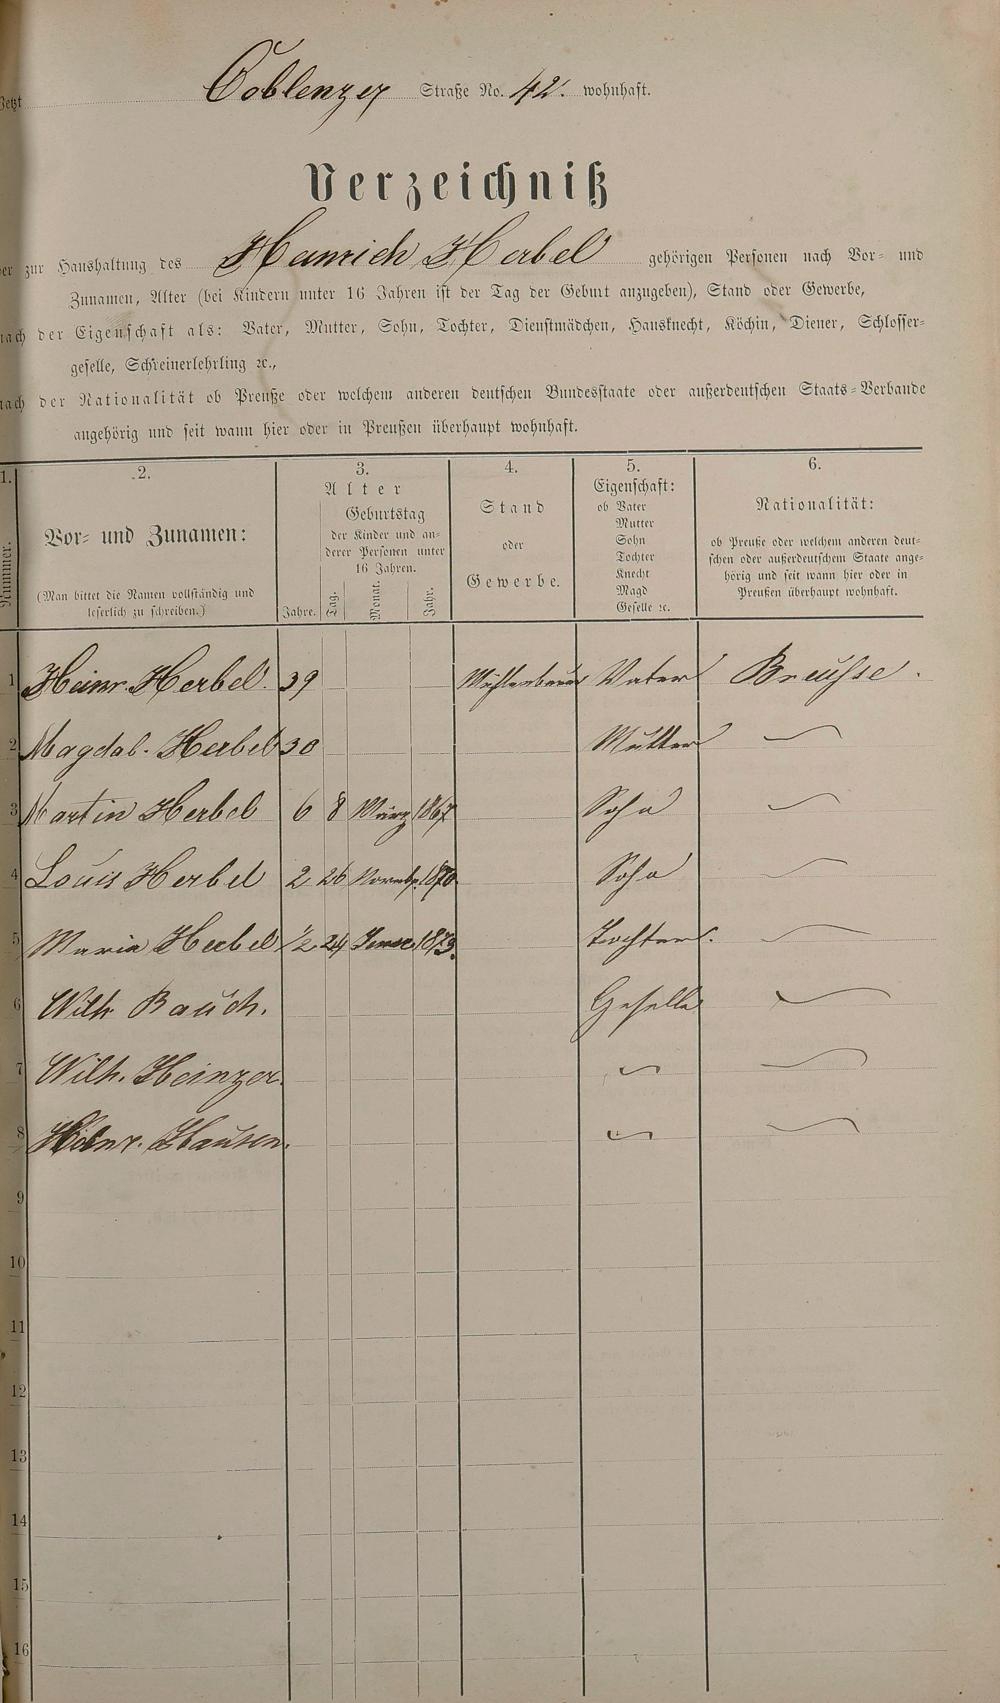 Jetzt Coblenzer Straße No. 42. wohnhaft.
Verzeichniß
der zur Haushaltung des Heinrich Herbel gehörigen Personen nach Vor- und
Zunamen, Alter (bei Kindern unter 16 Jahren ist der Tag der Geburt anzugeben), Stand oder Gewerbe,
nach der Eigenschaft als: Vater, Mutter, Sohn, Tochter, Dienstmädchen, Hausknecht, Köchin, Diener, Schlosser-
geselle, Schreinerlehrling ꝛc.,
nach der Nationalität ob Preuße oder welchem anderen deutschen Bundesstaate oder außerdeutschen Staats-Verbande
angehörig und seit wann hier oder in Preußen überhaupt wohnhaft.
1.
Nummer.
2.
Vor- und Zunamen:
(Man bittet die Namen vollständig und
leserlich zu schreiben.)
3.
Alter
Geburtstag
der Kinder und an-
derer Personen unter
16 Jahren.
Jahre. Tag. Monat. Jahr.
4.
Stand
oder
Gewerbe.
5.
Eigenschaft:
ob Vater
Mutter
Sohn
Tochter
Knecht
Magd
Geselle ꝛc.
6.
Nationalität:
ob Preuße oder welchem anderen deut-
schen oder außerdeutschem Staate ange-
hörig und seit wann hier oder in
Preußen überhaupt wohnhaft.
1 Heinr. Herbel. 39 Mühlenbauer Vater Preusse.
2 Magdal. Herbel 30 Mutter
3 Martin Herbel 6 8 März 1867 Sohn
4 Louis Herbel 2 26 Novemb. 1870 Sohn
5 Maria Herbel 1/2 24 Januar 1873. Tochter.
6 Wilh. Bauch. Geselle
7 Wilh. Heinzer.
8 Heinr. Hausen.
9
10
11
12
13
14
15
16